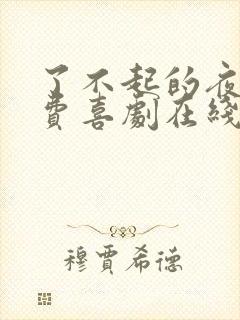 了不起的夜
費喜劇在綫
穆賈希德